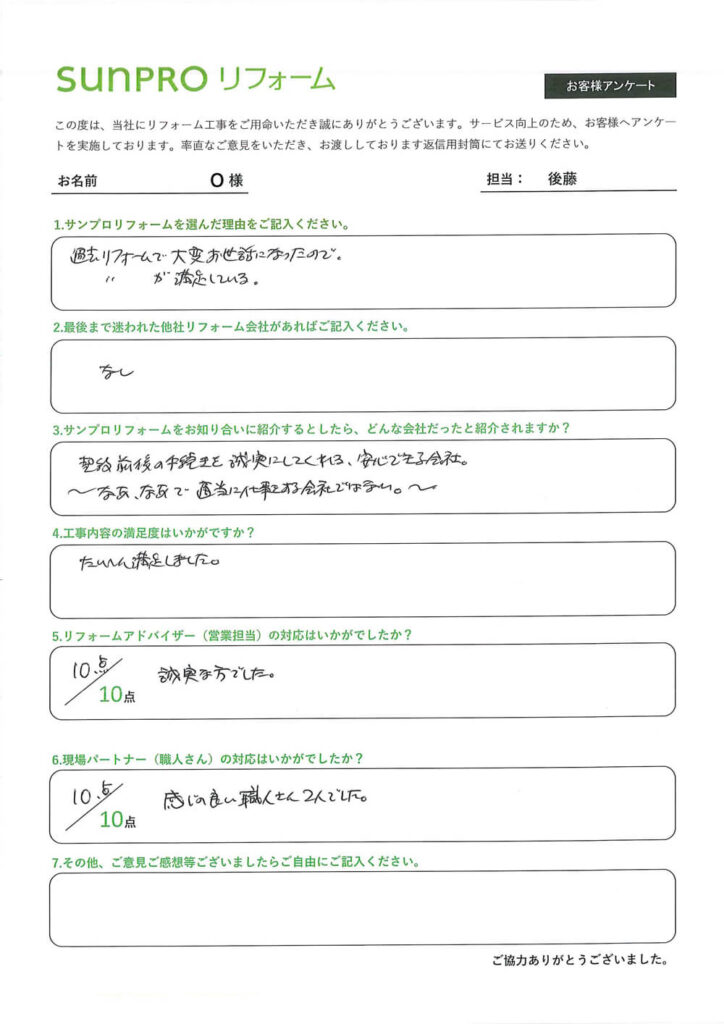 sunPRO リフォーム
お客様アンケート
この度は、当社にリフォーム工事をご用命いただき誠にありがとうございます。サービス向上のため、お客様へアンケー
トを実施しております。率直なご意見をいただき、お渡ししております返信用封筒にてお送りください。
お名前 O 様 担当： 後藤
1.サンプロリフォームを選んだ理由をご記入ください。
過去リフォームで大変お世話になったので。
〃 が満足している。
2.最後まで迷われた他社リフォーム会社があればご記入ください。
なし
3.サンプロリフォームをお知り合いに紹介するとしたら、どんな会社だったと紹介されますか？
契約前後の手続きを誠実にしてくれる、安心できる会社。
〜なあ、なあで適当に仕事をする会社ではない。〜
4.工事内容の満足度はいかがですか？
たいへん満足しました。
5.リフォームアドバイザー（営業担当）の対応はいかがでしたか？
10点/10点 誠実な方でした。
6.現場パートナー（職人さん）の対応はいかがでしたか？
10点/10点 感じの良い職人さん2人でした。
7.その他、ご意見ご感想等ございましたらご自由にご記入ください。
ご協力ありがとうございました。